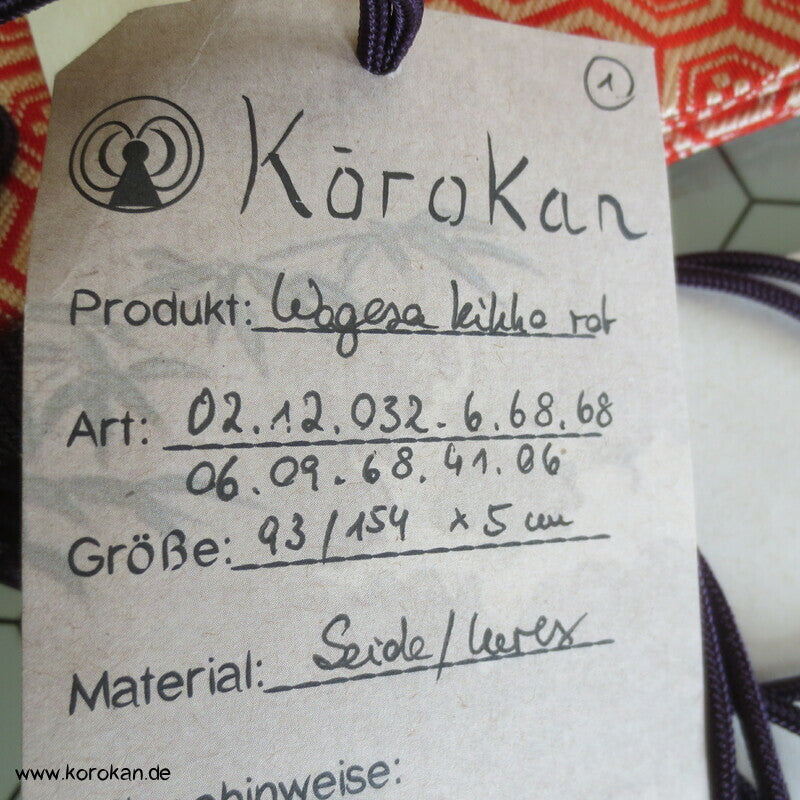 1
Kōrokan
Produkt: Wagesa kikko rot
Art: 02.12.032.6.68.68
06.09.68.41.06
Größe: 93/154 x 5 cm
Material: Seide/Lurex
hinweise:
www.korokan.de